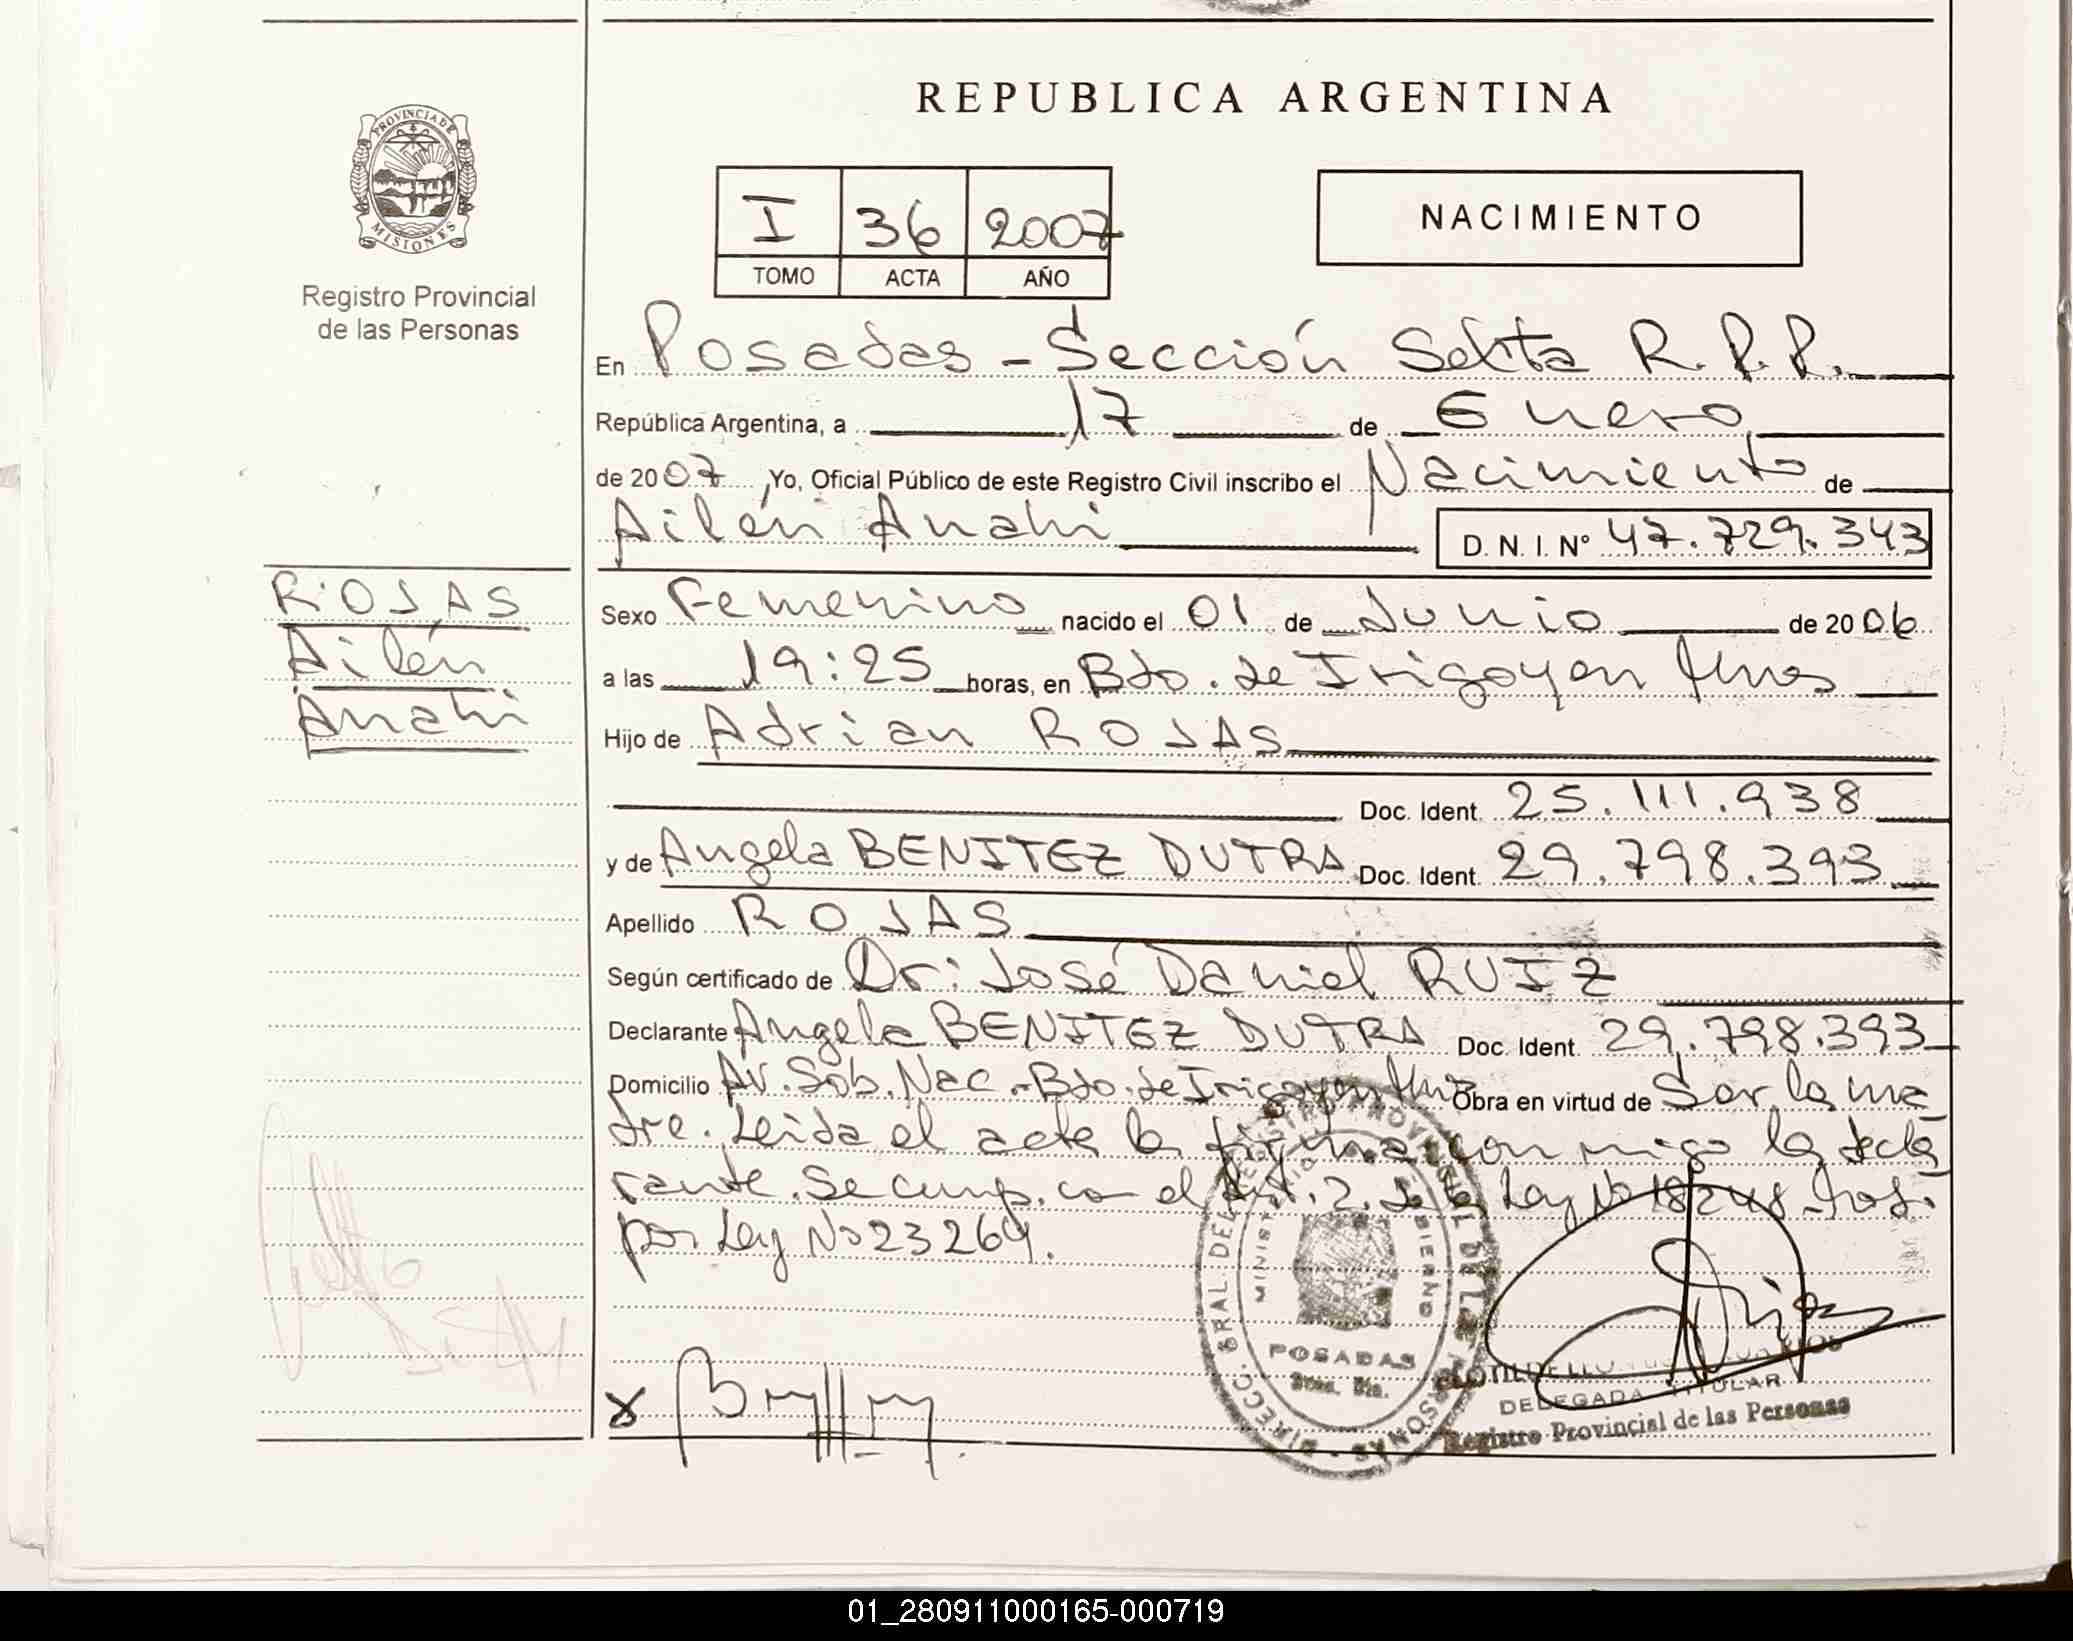 REPUBLICA ARGENTINA
PROVINCIA DE
MISIONES
Registro Provincial
de las Personas
I 36 2007
TOMO ACTA AÑO
NACIMIENTO
En Posadas - Sección Sexta R.P.P.
República Argentina, a 17 de Enero
de 2007, Yo, Oficial Público de este Registro Civil inscribo el Nacimiento de
Ailén Anahi D. N. I. Nº 47.729.343
ROJAS
Ailén
Anahi
Sexo Femenino nacido el 01 de Junio de 2006
a las 19:25 horas, en Bdo. de Irigoyen Mnes
Hijo de Adrian ROJAS
Doc. Ident. 25.111.938
y de Angela BENITEZ DUTRA Doc. Ident. 29.798.393
Apellido ROJAS
Según certificado de Dr: José Daniel RUIZ
Declarante Angela BENITEZ DUTRA Doc. Ident. 29.798.393
Domicilio Av. Sob. Nac. - Bdo. de Irigoyen Obra en virtud de Ser la ma
dre. Leida el acta la firma conmigo la decla
rante. Se cump. con el Art. 2 de la Ley Nº 18248
por Ley Nº 23264.
DIRECC. GRAL DEL REGISTRO PROVINCIAL DE LAS PERSONAS
MINISTERIO GOBIERNO
POSADAS
DELEGADA TITULAR
Registro Provincial de las Personas
01_280911000165-000719